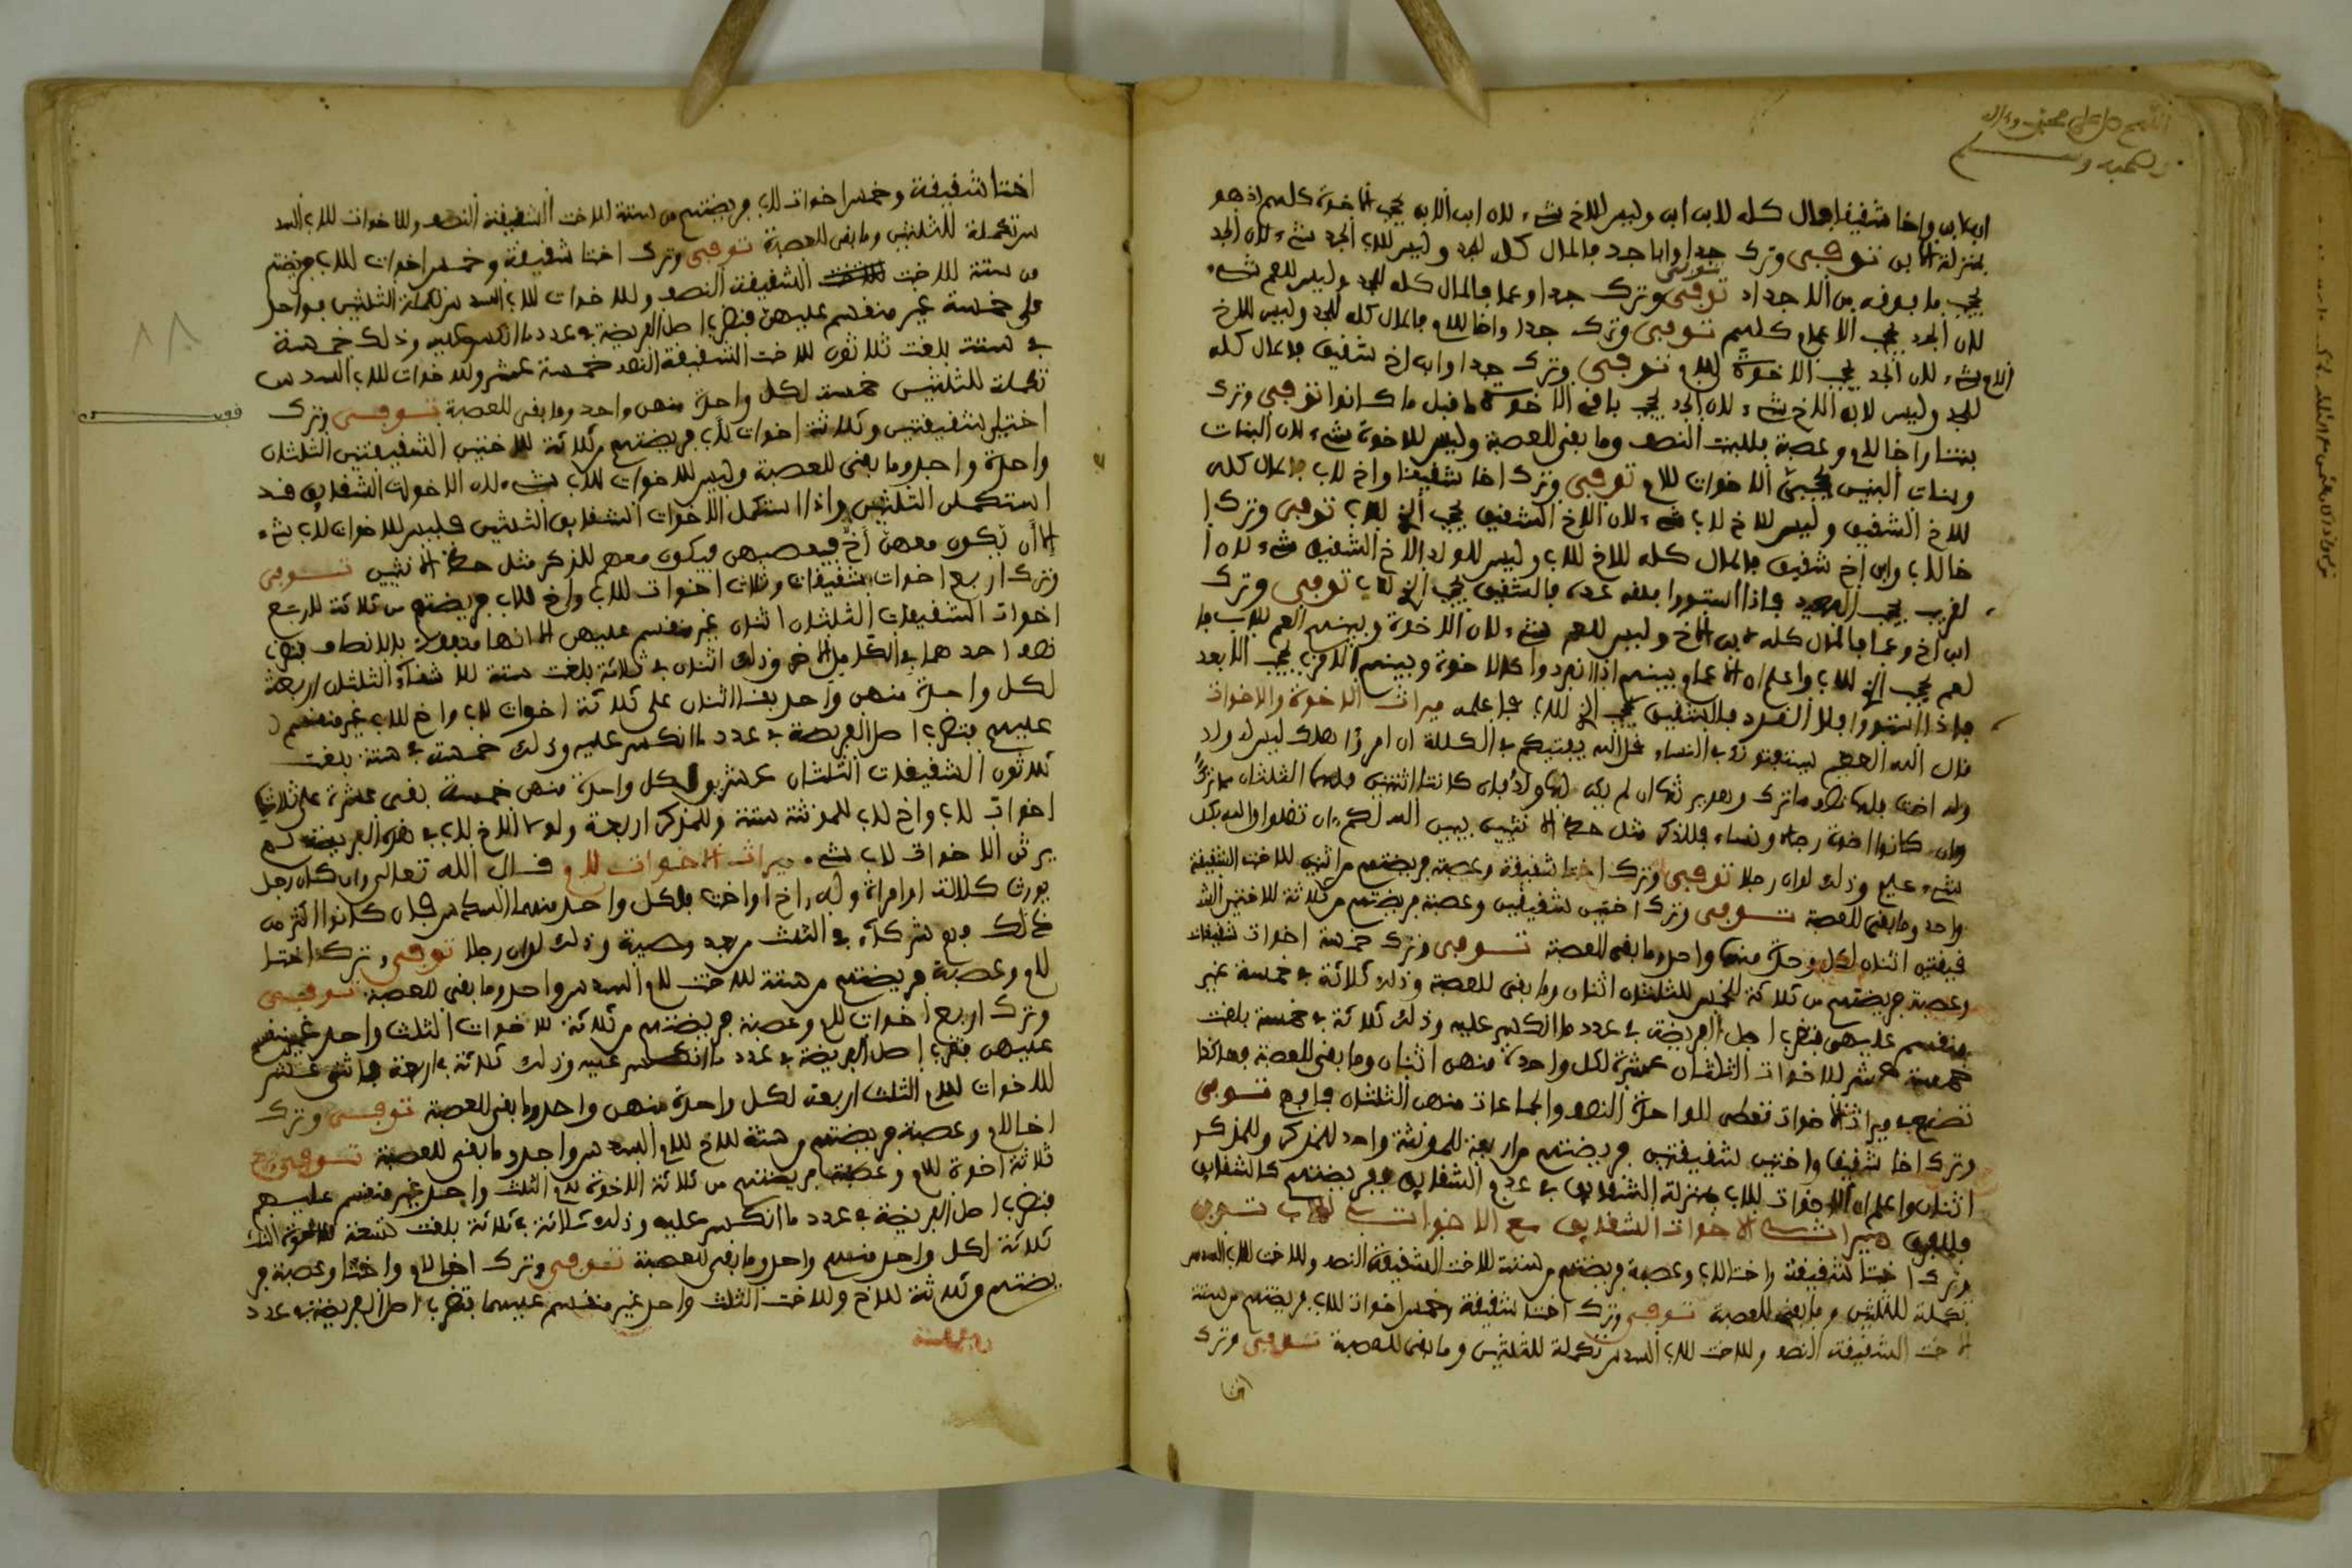 اللهم صل على محمد وءاله
وصحبه وسلم
ابن ابن واخا شقيقا فالمال كله لابن ابن وليس للاخ شيء لان ابن الابن يحجب الاخوة كلهم اذ هو
بمنزلة الابن توفي وترك جدا وابا جد فالمال كله للجد وليس للاب الجد شيء لان الجد
يحجب ما فوقه من الاجداد توفي وترك جدا وعما فالمال كله للجد وليس للعم شيء
لان الجد يحجب الاعمام كلهم توفي وترك جدا واخا للام فالمال كله للجد وليس للاخ
للام شيء لان الجد يحجب الاخوة للام توفي وترك جدا وابن اخ شقيق فالمال كله
للجد وليس لابن الاخ شيء لان الجد يحجب باقي الاخوة ما قبل ما كانوا توفي وترك
بنتا واخا للام وعصبة فللبنت النصف وما بقي للعصبة وليس للاخوة شيء لان البنات
وبنات البنين يحجبن الاخوات للام توفي وترك اخا شقيقا واخ لاب فالمال كله
للاخ الشقيق وليس للاخ لاب شيء لان الاخ الشقيق يحجب الاخ للاب توفي وترك ا
خا للاب وابن اخ شقيق فالمال كله للاخ للاب وليس للولد الاخ الشقيق شيء لان ا
لقريب يحجب البعيد فاذا استووا فالشقيق يحجب الاخ للاب توفي وترك
ابن اخ وعما فالمال كله لابن الاخ وليس للعم شيء لان الاخوة وبنيهم
لعم يحجب الاخ للاب واعلم ان الاعمام وبنيهم اذا انفردوا كالاخوة وبنيهم الاقرب يحجب الابعد
فاذا استووا فالشقيق يحجب الاخ للاب فاعلمه ميراث الاخوة والاخوات
قال الله العظيم يستفتونك قل الله يفتيكم في الكلالة ان امرؤا هلك ليس له ولد
وله اخت فلها نصف ما ترك وهو يرثها ان لم يكن لها ولد فان كانتا اثنتين فلهما الثلثان مما ترك
وان كانوا اخوة رجالا ونساء فللذكر مثل حظ الانثيين يبين الله لكم ان تضلوا والله بكل
شيء عليم وذلك لو ان رجلا توفي وترك اختا شقيقة وعصبة فريضتهم من اثنين للاخت الشقيقة
واحد وما بقي للعصبة توفي وترك اختين شقيقتين وعصبة فريضتهم من ثلاثة للاختين الش
قيقتين اثنان لكل وحدة منهما واحد وما بقي للعصبة توفي وترك خمسة اخوات شقيقات
وعصبة فريضتهم من ثلاثة للخمس الثلثان اثنان وما بقي للعصبة وذلك ثلاثة في خمسة غير
منقسم عليهن فتضرب اصل الفريضة في عدد ما انكسر عليه وذلك ثلاثة في خمسة بلغت
خمسة عشر للاخوات الثلثان عشرة لكل واحدة منهن اثنان وما بقي للعصبة وهكذا
تصنع في ميراث الاخوات تعطي للواحدة النصف والجماعات منهن الثلثان فافهم توفي
وترك اخا شقيقا واختين شقيقتين فريضتهم من اربعة للمونثة واحد للمذكر وللمذكر
اثنان واعلم ان الاخوات للاب بمنزلة الشقايق في عدم الشقايق ففريضتهم كالشقايق
ميراث الاخوات الشقايق مع الاخوات للاب توفي
وترك اختا شقيقة واختا للاب وعصبة فريضتهم من ستة للاخت الشقيقة النصف وللاخت للاب السدس
تكملة للثلثين وما بقي للعصبة توفي وترك اختا شقيقة وخمس اخوات للاب فريضتهم من ستة
الاخت الشقيقة النصف وللاخت للاب السدس تكملة للثلثين وما بقي للعصبة توفي وترك
اختا
اختا شقيقة وخمس اخوات للاب فريضتهم من ستة للاخت الشقيقة النصف وللاخوات للاب السد
س تكملة للثلثين وما بقي للعصبة توفي وترك اختا شقيقة وخمس اخوات للاب فريضتهم
من ستة للاخت الشقيقة النصف وللاخوات للاب السدس تكملة الثلثين بواحد
على خمسة غير منقسم عليهن فتضرب اصل الفريضة في عدد ما انكسر عليه وذلك خمسة
في ستة بلغت ثلاثون للاخت الشقيقة النصف خمسة عشر وللاخوات للاب السدس
تكملة للثلثين خمسة لكل واحدة منهن واحد وما بقي للعصبة توفي وترك
اختين شقيقتين وثلاثة اخوات للاب فريضتهم من ثلاثة للاختين الشقيقتين الثلثان
واحدة واحد وما بقي للعصبة وليس للاخوات للاب شيء لان الاخوات الشقايق قد
استكملن الثلثين واذا استكمل الاخوات الشقايق الثلثين فليس للاخوات للاب شيء
الا ان تكون معهن اخ فيعصبهن فيكون معهم للذكر مثل حظ الانثيين توفي
وترك اربع اخوات شقيقات وثلاث اخوات للاب واخ للاب فريضتهم من ثلاثة للاربع
اخوات الشقيقات الثلثان اثنان غير منقسم عليهن الا انها متفقة بالانصاف فتضرب
نصف احدهما في الكامل الاخر وذلك اثنان في ثلاثة بلغت ستة للاشقاء الثلثان اربعة
لكل واحدة منهن واحد بقي اثنان على ثلاثة اخوات للاب واخ للاب غير منقسم
عليهم فتضرب اصل الفريضة في عدد ما انكسر عليه وذلك خمسة في ستة بلغت
ثلاثون الشقيقات الثلثان عشرون لكل واحدة منهن خمسة بقي عشرة على ثلاث
اخوات للاب واخ للاب للمونثة ستة وللمذكر اربعة ولولا الاخ للاب في هذه الفريضة لم
يرث الاخوات لاب شيء ميراث الاخوات للام قال الله تعالى وان كان رجل
يورث كلالة او امراة وله اخ او اخت فلكل واحد منهما السدس فان كانوا اكثر من
ذلك فهم شركاء في الثلث من بعد وصية وذلك لو ان رجلا توفي وترك اختا
للام وعصبة فريضتهم من ستة للاخت للام السدس واحد وما بقي للعصبة توفي
وترك اربع اخوات للام وعصبة فريضتهم من ثلاثة للاخوات الثلث واحد غير منقسم
عليهن فتضرب اصل الفريضة في عدد ما انكسر عليه وذلك ثلاثة في اربعة باثني عشر
للاخوات للام الثلث اربعة لكل واحدة منهن واحد وما بقي للعصبة توفي وترك
اخا للام وعصبة فريضتهم من ستة للاخ للام السدس واحد وما بقي للعصبة توفي وترك
ثلاثة اخوة للام وعصبة فريضتهم من ثلاثة الاخوة للام الثلث واحد غير منقسم عليهم
فتضرب اصل الفريضة في عدد ما انكسر عليه وذلك ثلاثة في ثلاثة بلغت تسعة للاخوة الثلث
ثلاثة لكل واحد منهم واحد وما بقي للعصبة توفي وترك اخا للام واختا وعصبة فر
يضتهم من ثلاثة للاخ وللاخت الثلث واحد غير منقسم عليهما فتضرب اصل الفريضة في عدد
٨٨